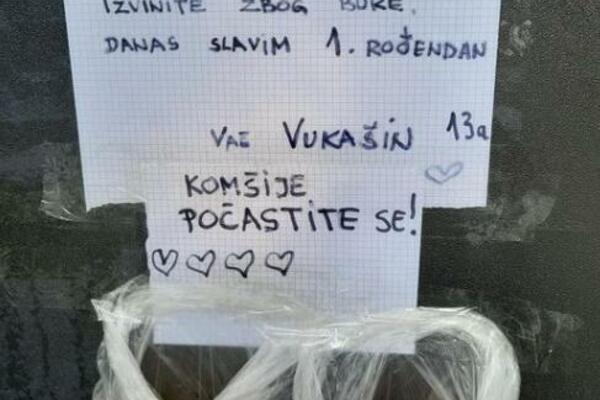 IZVINITE ZBOG BUKE.
DANAS SLAVIM 1. ROĐENDAN
VAŠ VUKAŠIN 13a
KOMŠIJE
POČASTITE SE!